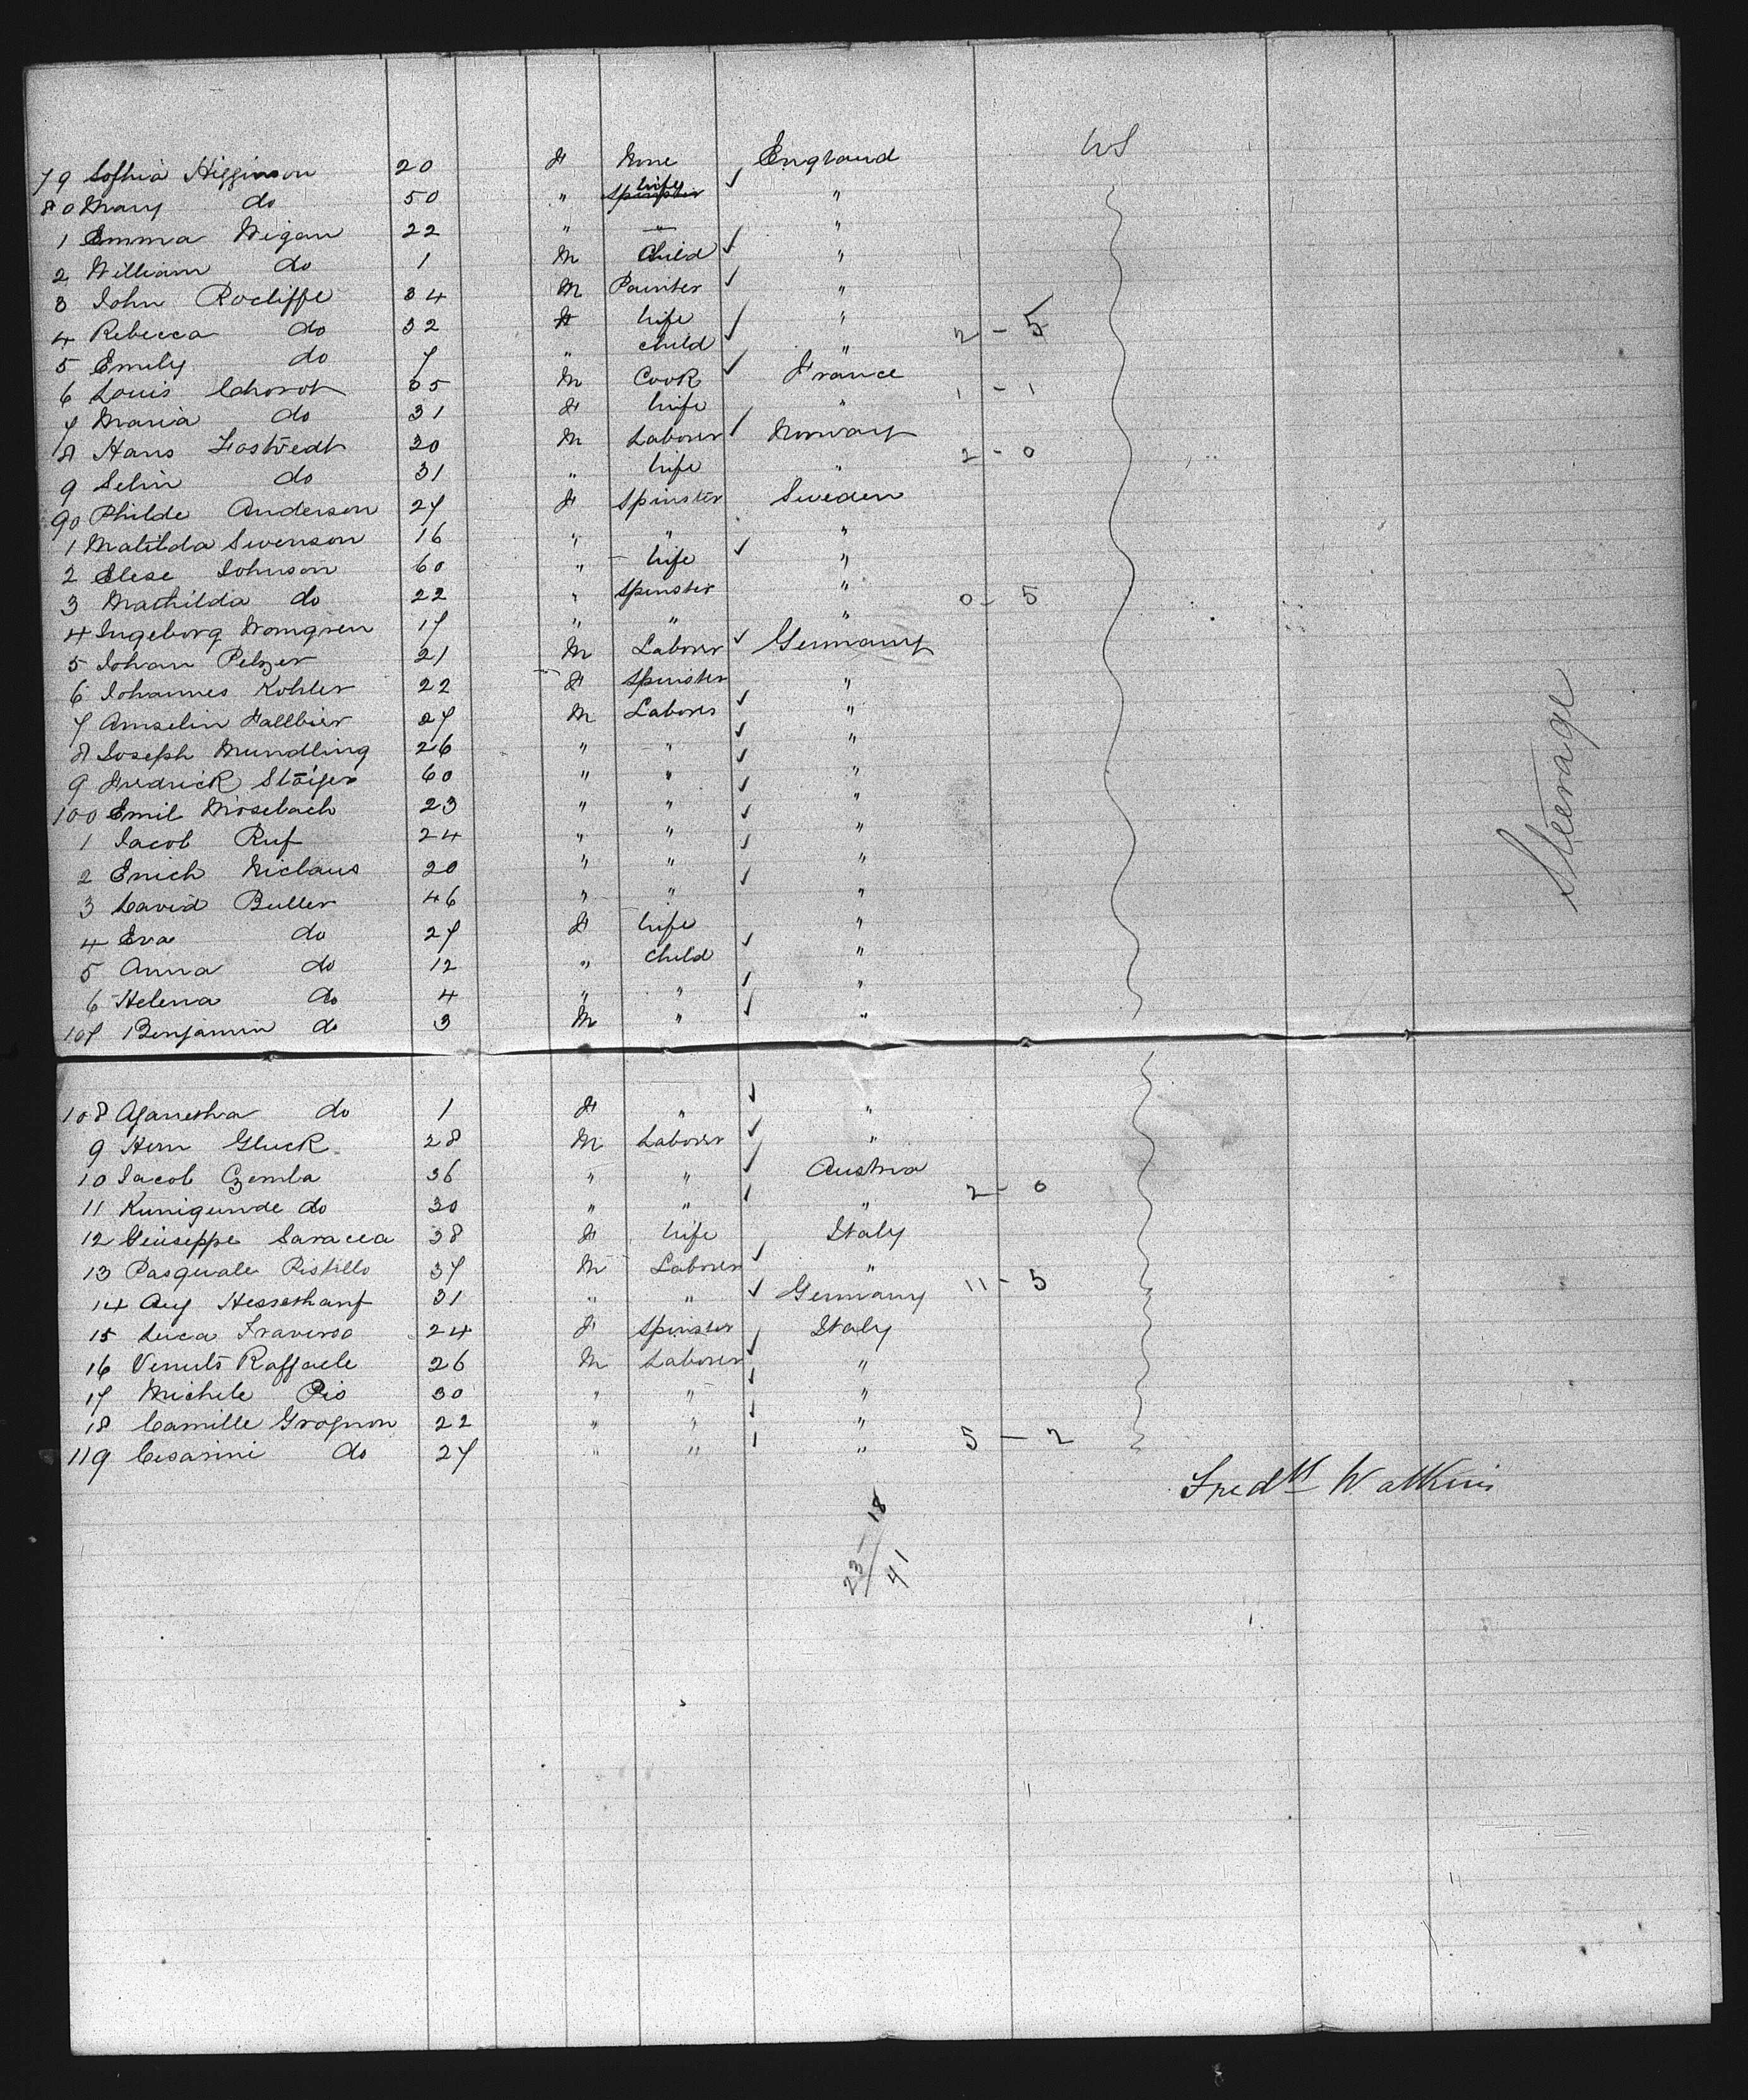 US
79 Sophia Higginson 20 F None England
80 Mary do 50 " Wife "
1 Emma Wigan 22 " — "
2 William do 1 M Child "
3 John Rocliffe 34 M Painter "
4 Rebecca do 32 F Wife " 2 - 5
5 Emily do 7 " child "
6 Louis 35 M Cook France 1 - 1
7 Maria do 31 F Wife "
8 Hans 30 M Laborer Norway 2 - 0
9 Selin do 31 " Wife "
90 Philde Anderson 27 F Spinster Sweden
1 Matilda Swenson 16 " " "
2 Elese Johnson 60 " Wife "
3 Mathilda do 22 " Spinster " 0 - 5
4 Ingeborg 17 " " "
5 Johan Pelzer 21 M Laborer Germany
6 Johannes Kohler 22 F Spinster "
7 Amselin Fallbier 27 M Laborer "
8 Joseph Mundling 26 " " "
9 Fredrick Stäiger 60 " " "
100 Emil Mosebach 23 " " "
1 Jacob Ruf 24 " " "
2 Erich Niclaus 20 " " "
3 David Buller 46 " " "
4 Eva do 27 F Wife "
5 Anna do 12 " Child "
6 Helena do 4 " " "
107 Benjamin do 3 M " "
108 Aganetha do 1 F " "
9 Hern Gluck 28 M Laborer "
10 Jacob Czemba 36 " " Austria
11 Kunigunde do 30 " " " 2 - 0
12 Giuseppe Saracea 38 F Wife Italy
13 Pasquale Pistillo 37 M Laborer "
14 Aug 31 " " Germany 11 - 5
15 Luca Traverso 24 F Spinster Italy
16 Raffaele 26 M Laborer "
17 Michele Pio 30 " " "
18 Camille Grognon 22 " " "
119 Cesarini do 27 " " " 5 - 2
Steerage
Fredk Watkins
23 / 18
41